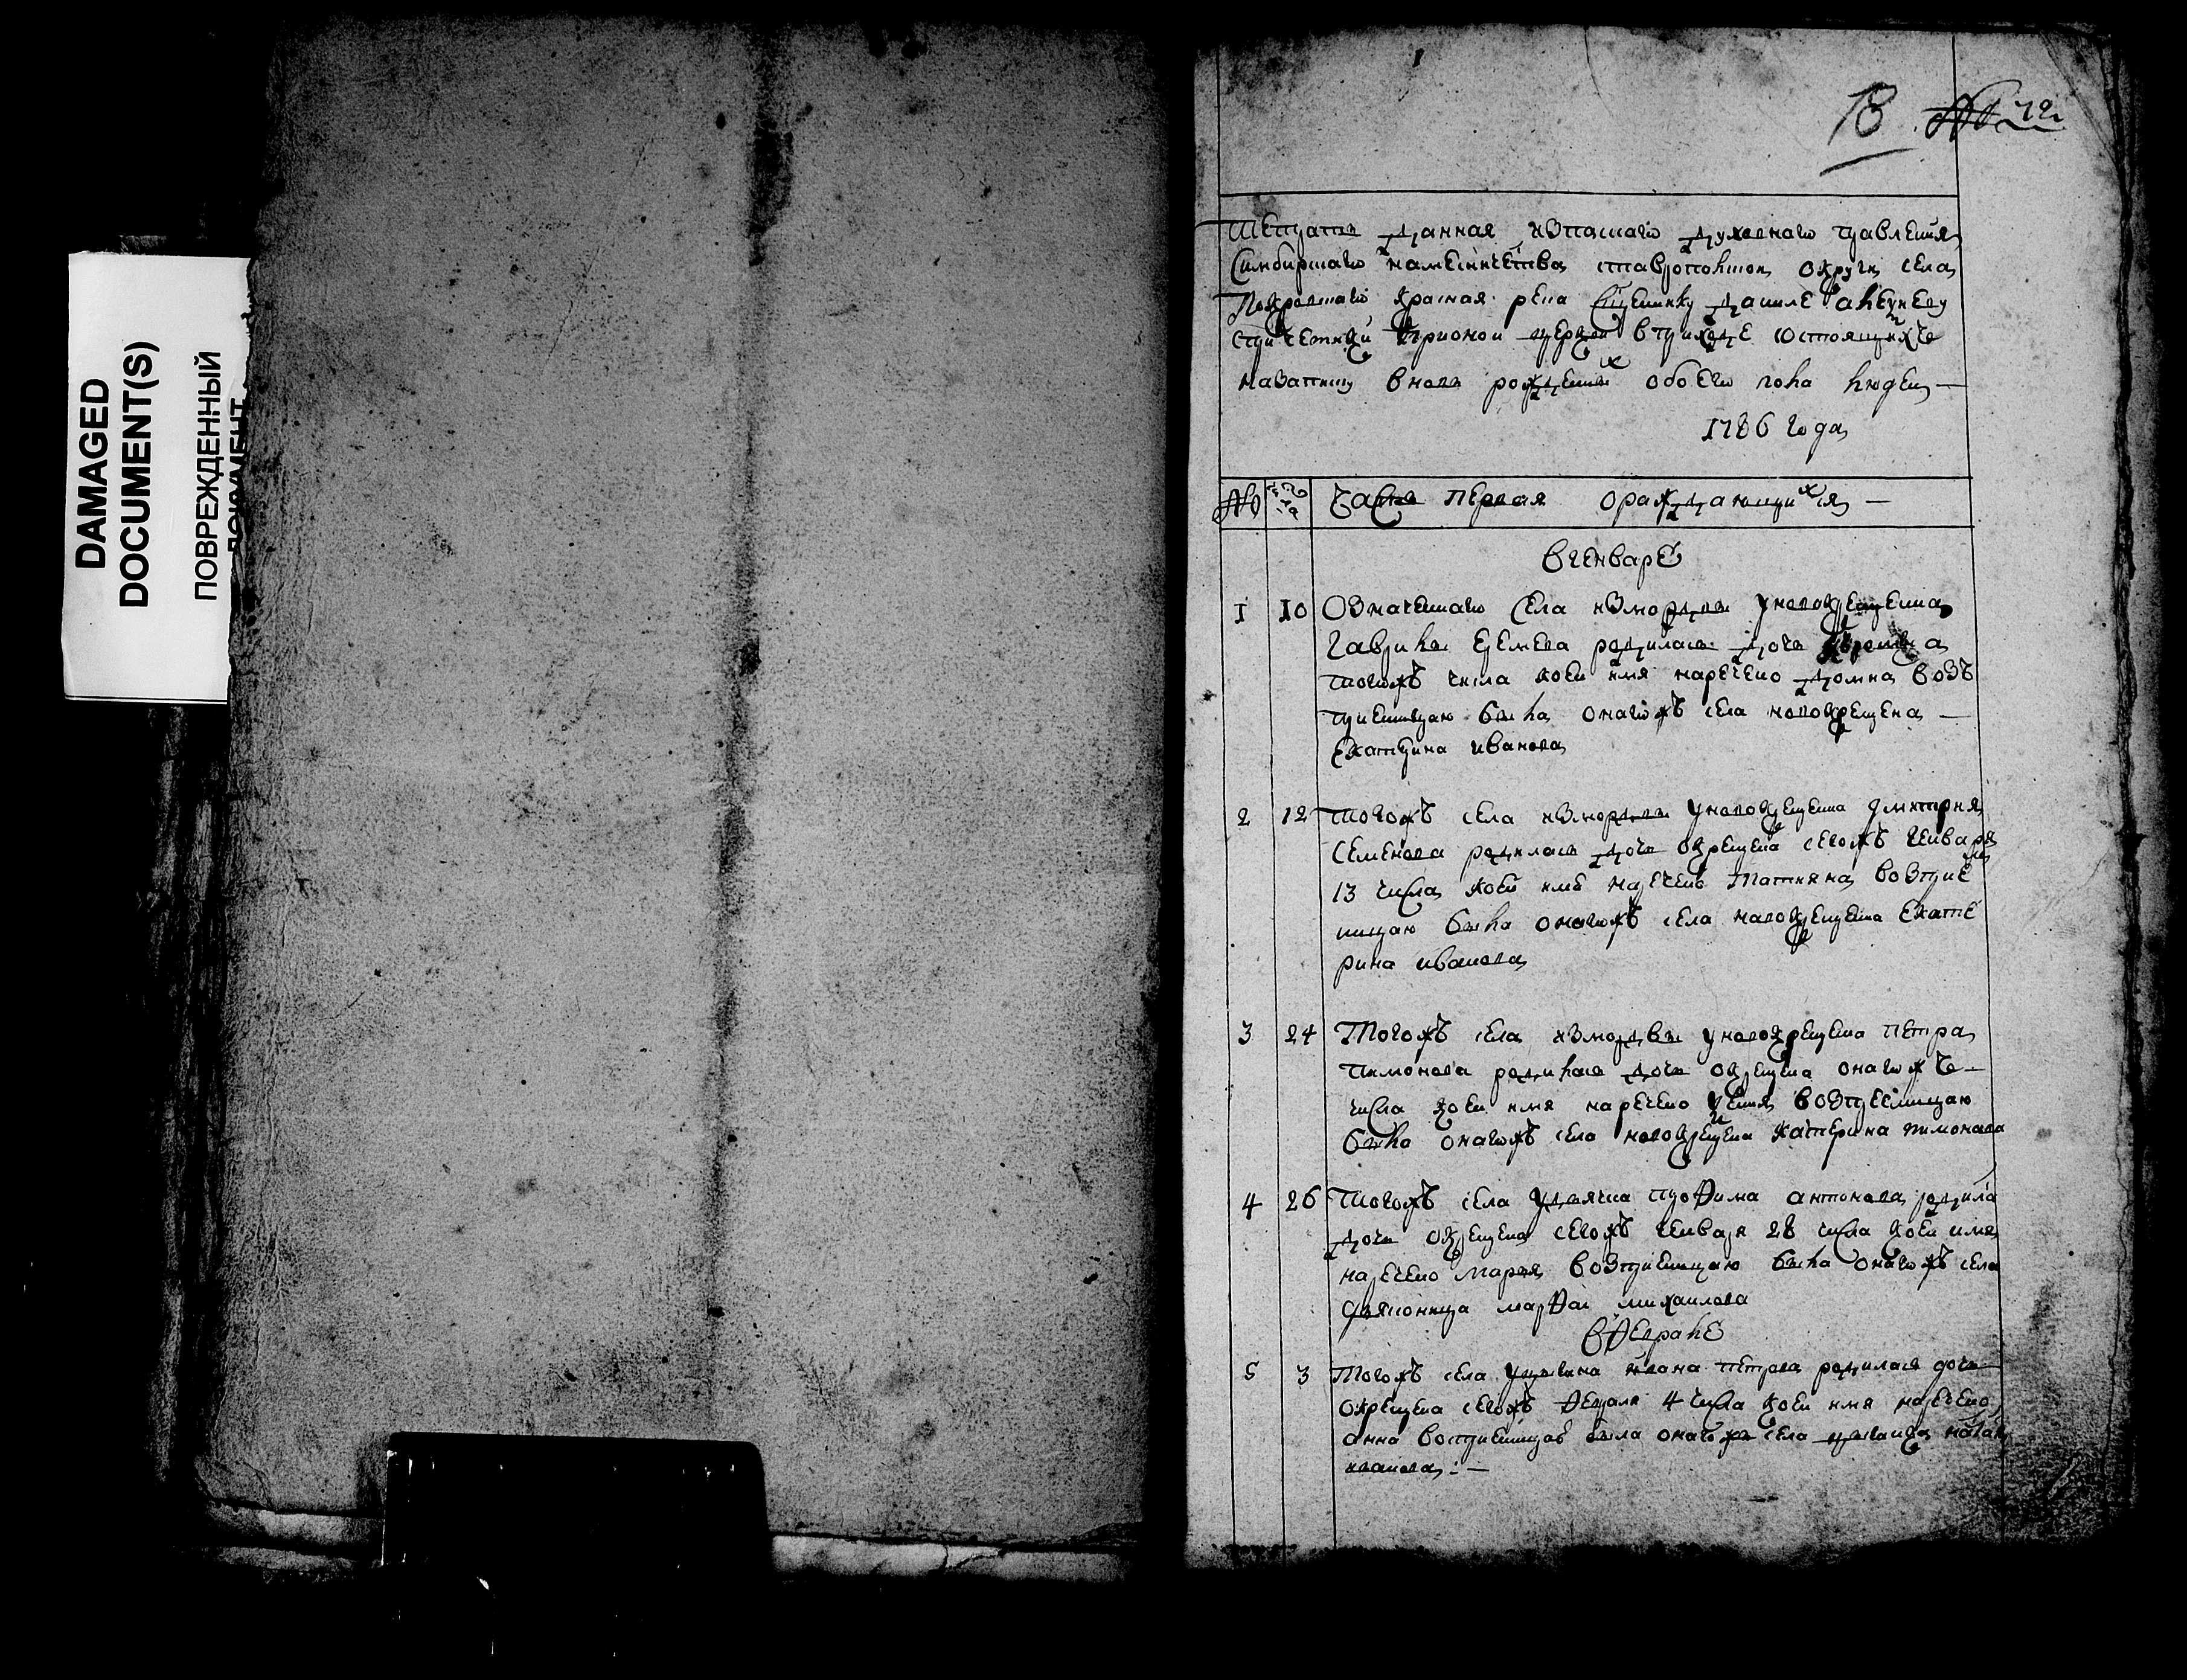 DAMAGED
DOCUMENT(S)
ПОВРЕЖДЕННЫЙ
ДОКУМЕНТ
13
Тетрать данная духовнаго правления
Симбирскаго наместничества ставропольской округи села
Покровскаго красная река священнику даниле алексееву
спричетники приходе состоящихъ
назаписку вновь рожденых обоего пола людеи —
1786 года
№ числа часть первая ораждающихся —
вгенваре
1 10 Означеннаго села измордвы уновокрещена
гаврилы еремеева родилась дочь
тогожъ числа коеи имя наречено домна возъ
приемницею была онагожъ села новокрещена —
екатерина иванова
2 12 тогожъ села измордвы уновокрещена дмитрия
семенова родилась дочь окрещена сегожъ генваря
13 числа коеи имя наречено татияна возприем
ницею была онагожъ села новокрещена екате
рина иванова
3 24 Тогожъ села измордвы уновокрещена петра
пимонова родилась дочь окрещена онагожъ —
числа коеи имя наречено возприемницею
была онагожъ села новокрещена катерина пимонова
4 26 тогожъ села удьячка трофима антонова родила
дочь окрещена сегожъ генваря 28 числа коеи имя
наречено марья возприемницею была онагожъ села
марфа михаилова
вфеврале
5 3 Тогожъ села ивана петрова родилася дочь
окрещена сегожъ февраля 4 числа коеи имя наречено
анна восприемницею была онагожъ села
иванова: —